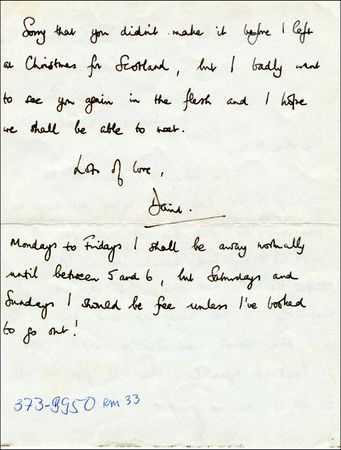 Sorry that you didn't make it before I left
at Christmas for Scotland, but I badly want
to see you again in the flesh and I hope
we shall be able to meet.
Lots of love,
David.
Mondays to Fridays I shall be away normally
until between 5 and 6, but Saturdays and
Sundays I should be fee unless I've booked
to go out!
373-9950 RM 33